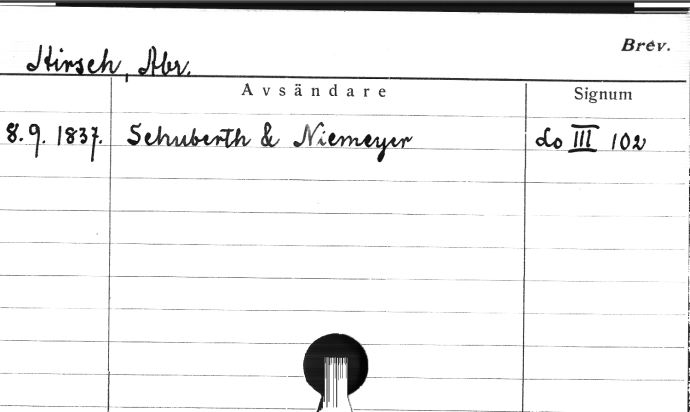 Brev.
Hirsch, Abr.
Avsändare Signum
8.9. 1837. Schuberth & Niemeyer do III 102